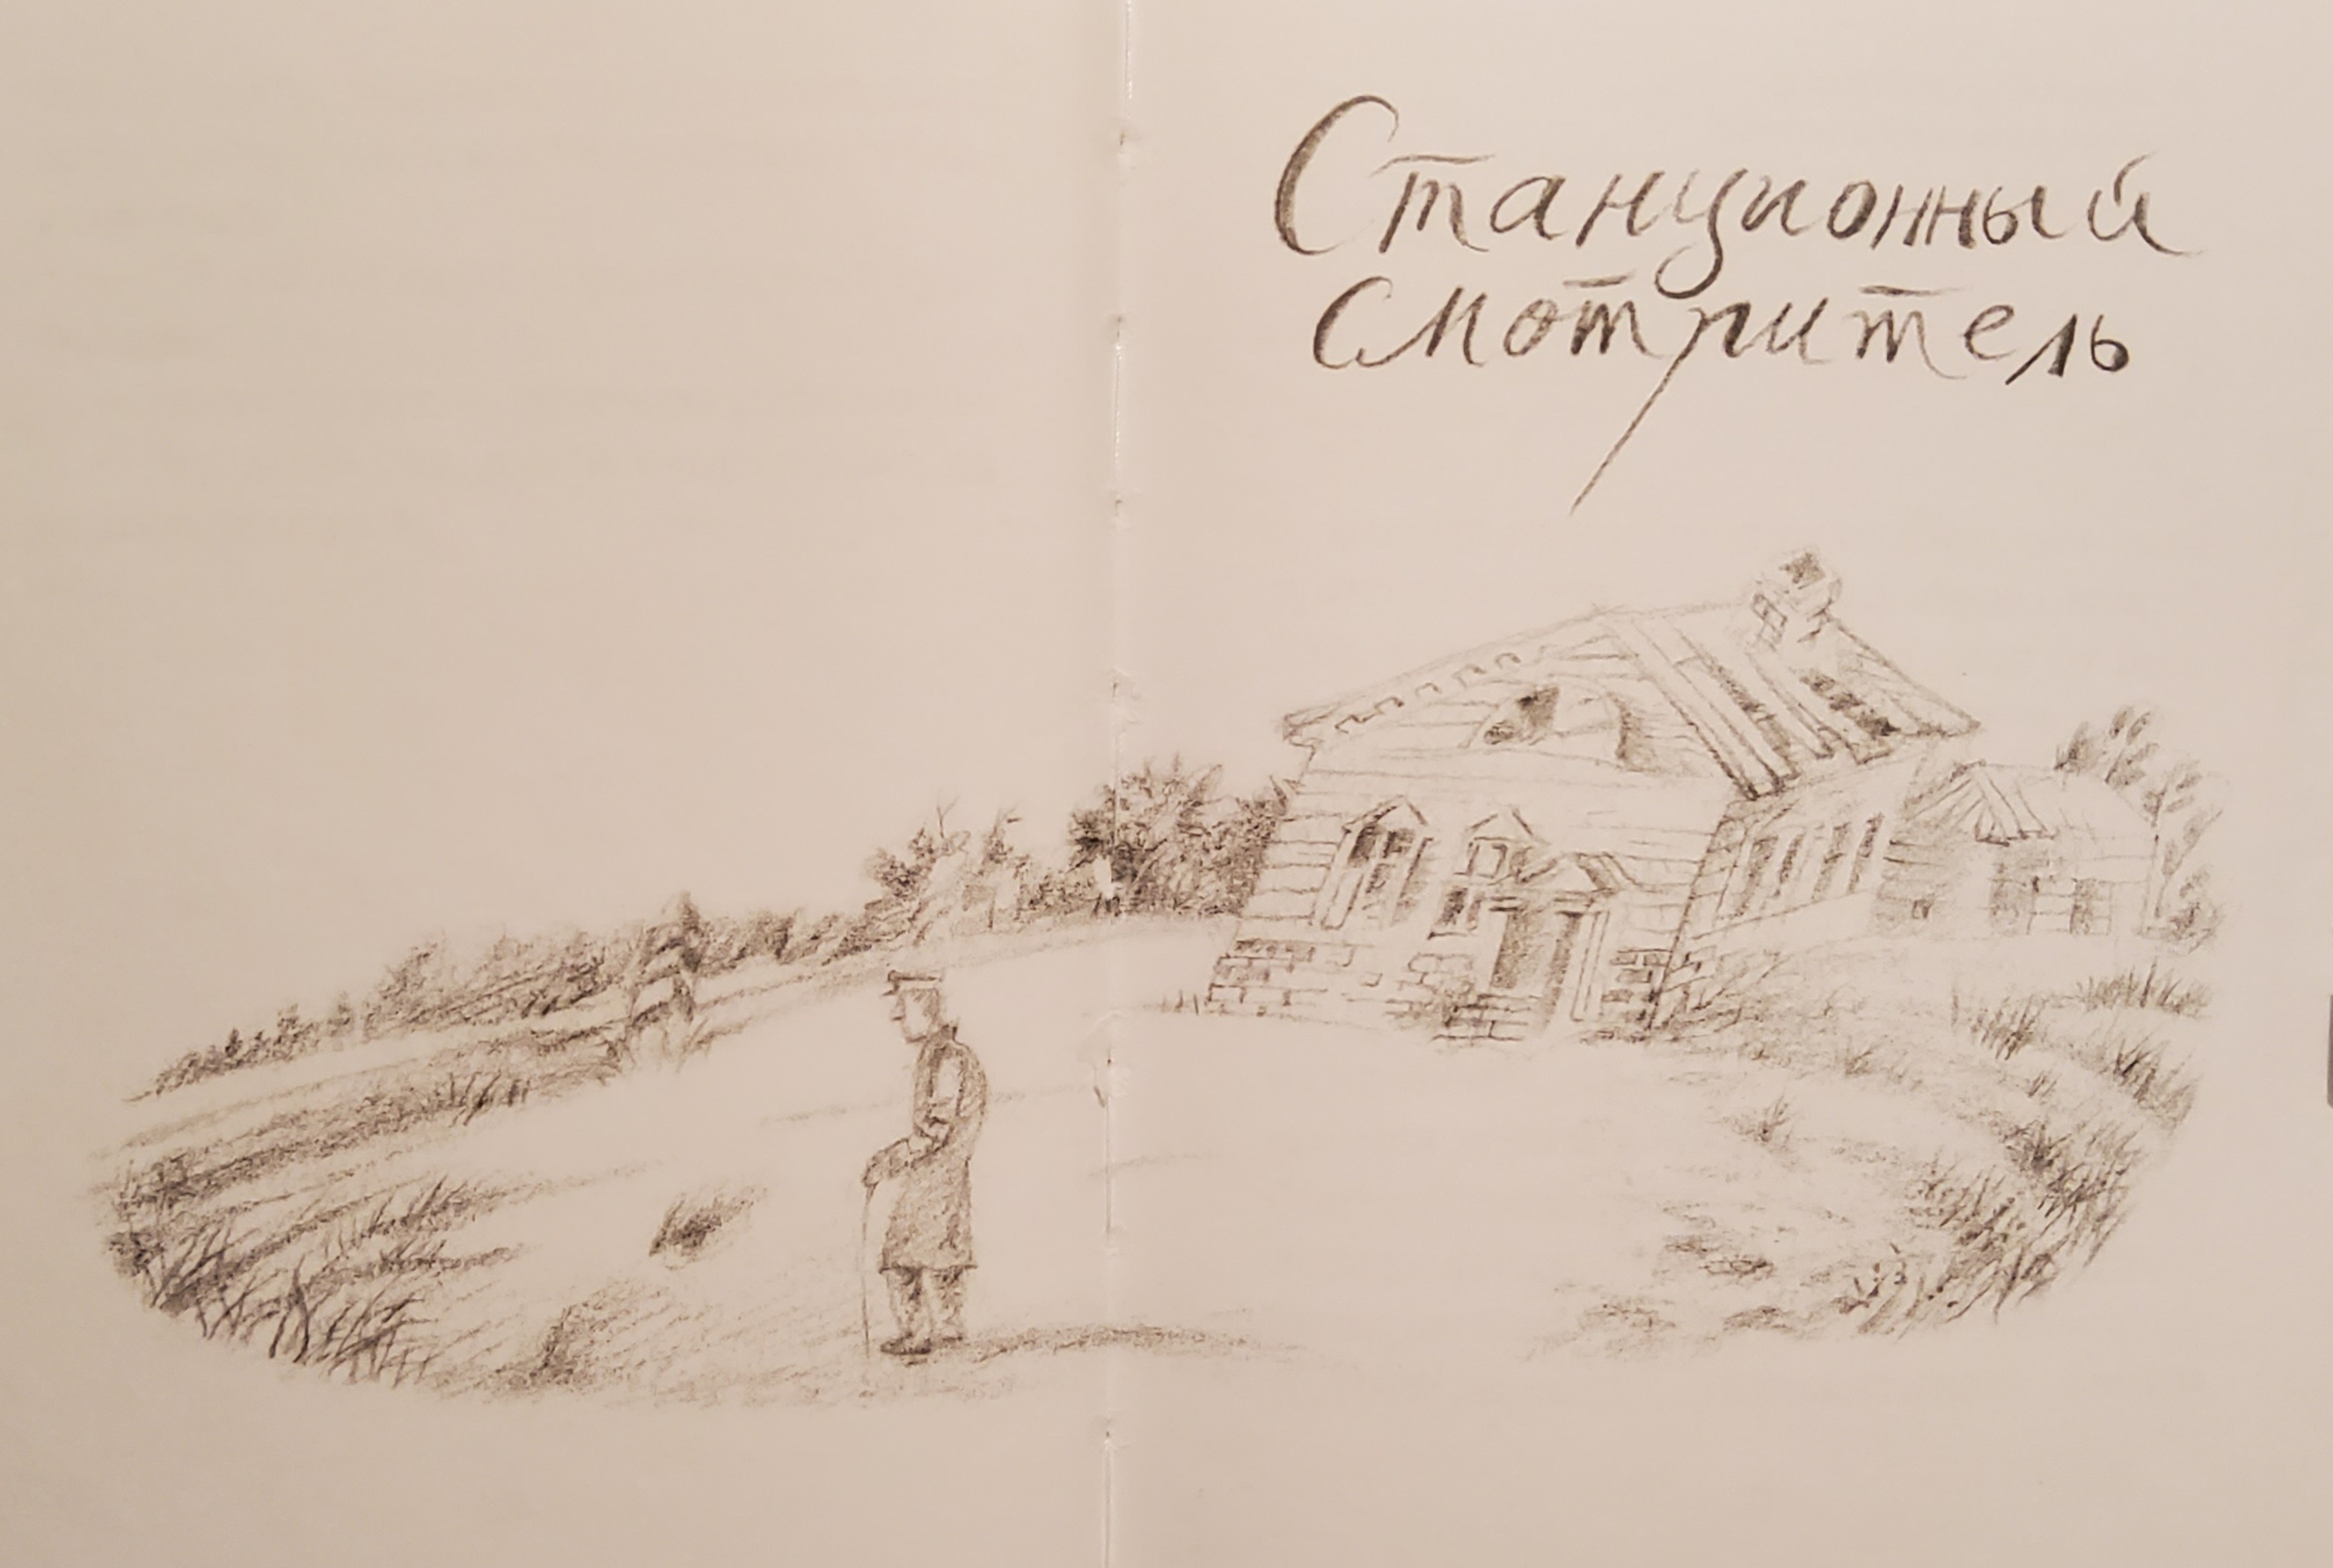 Станционный
смотритель